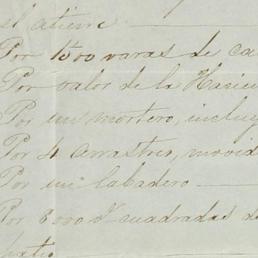 el atierre
Por 1500 varas de ca
Por valor de la Hacien
Por un mortero, incluy
Por 4 arrastres, movid
Por un labadero
Por 8000 V cuadradas de
patio